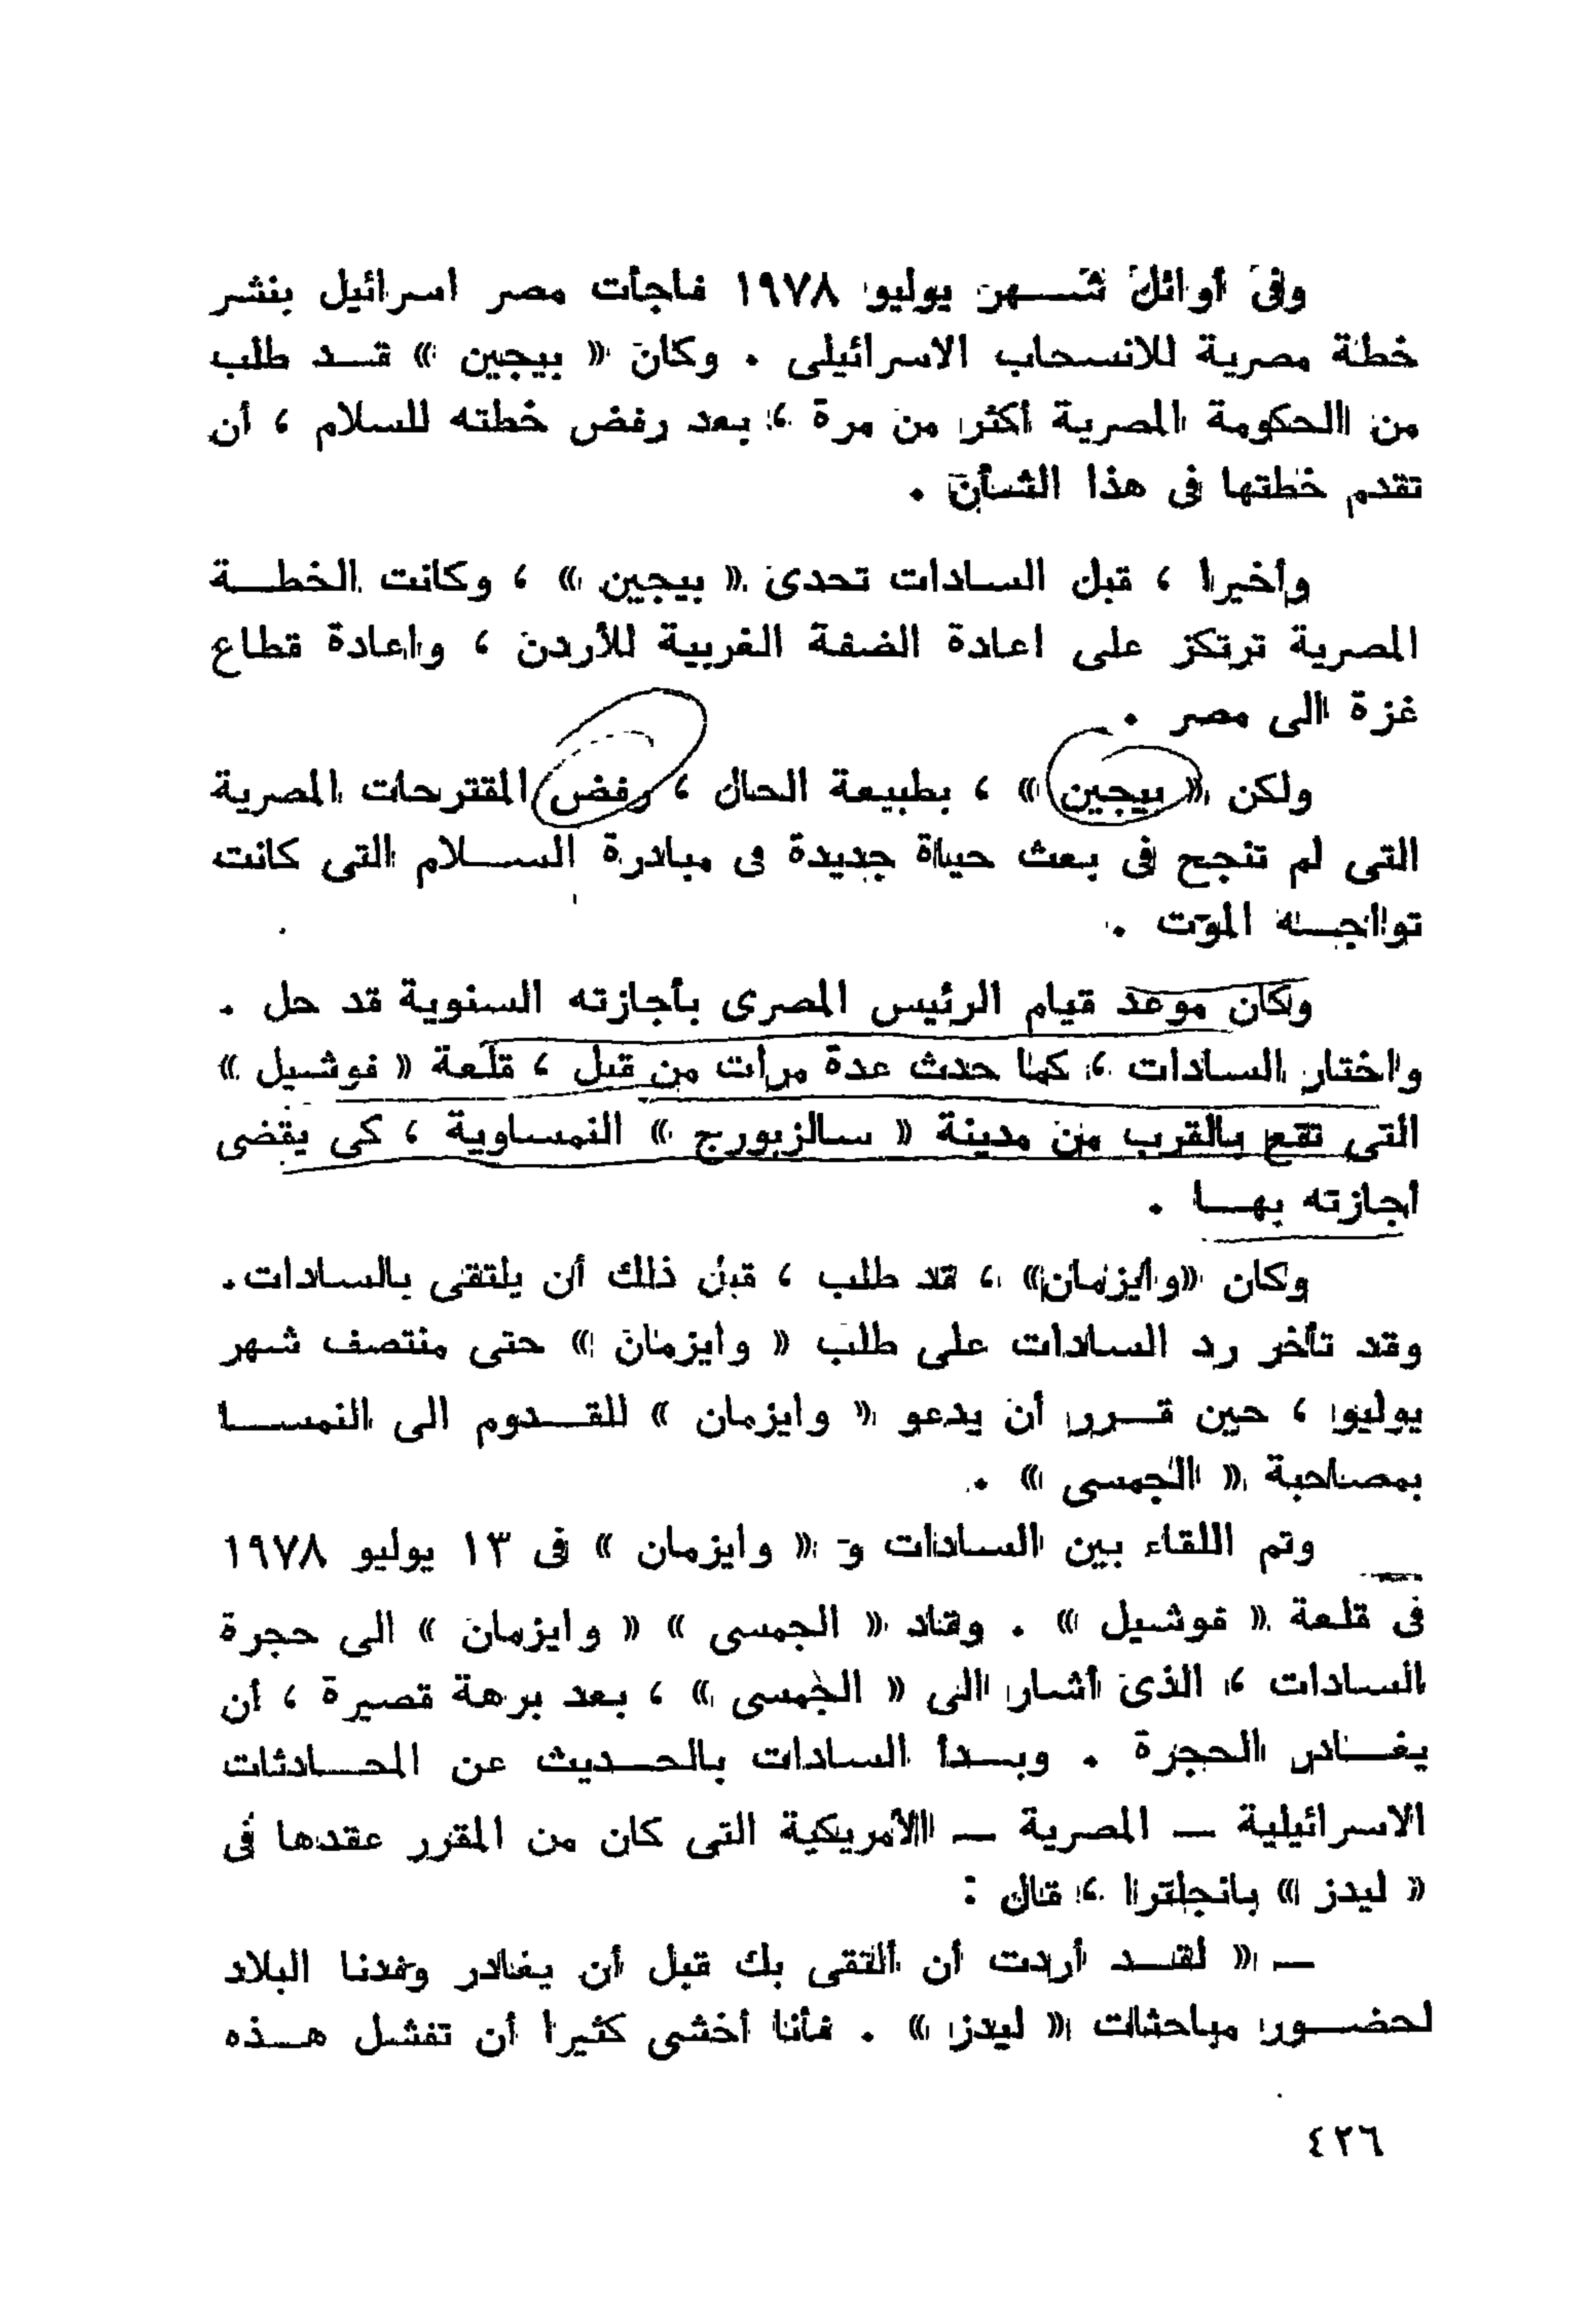 وفى أوائل شهر يوليو ١٩٧٨ فاجأت مصر اسرائيل بنشر
خطة مصرية للانسحاب الاسرائيلى . وكان « بيجين » قد طلب
من الحكومة المصرية أكثر من مرة ، بعد رفض خطته للسلام ، أن
تقدم خطتها فى هذا الشأن .
وأخيرا ، قبل السادات تحدى « بيجين » ، وكانت الخطة
المصرية ترتكز على اعادة الضفة الغربية للأردن ، واعادة قطاع
غزة الى مصر .
ولكن « بيجين » ، بطبيعة الحال ، رفض المقترحات المصرية
التى لم تنجح فى بعث حياة جديدة فى مبادرة السلام التى كانت
تواجه الموت .
وكان موعد قيام الرئيس المصرى بأجازته السنوية قد حل .
واختار السادات ، كما حدث عدة مرات من قبل ، قلعة « فوشيل »
التى تقع بالقرب من مدينة « سالزبورج » النمساوية ، كى يقضى
اجازته بها .
وكان «وايزمان» ، قد طلب ، قبل ذلك أن يلتقى بالسادات.
وقد تأخر رد السادات على طلب « وايزمان » حتى منتصف شهر
يوليو ، حين قرر أن يدعو « وايزمان » للقدوم الى النمسا
بمصاحبة « الجمسى » .
وتم اللقاء بين السادات و « وايزمان » فى ١٣ يوليو ١٩٧٨
فى قلعة « فوشيل » . وقاد « الجمسى » « وايزمان » الى حجرة
السادات ، الذى أشار الى « الجمسى » ، بعد برهة قصيرة ، أن
يغادر الحجرة . وبدأ السادات بالحديث عن المحادثات
الاسرائيلية — المصرية — الأمريكية التى كان من المقرر عقدها فى
« ليدز » بانجلترا ، قال :
— « لقد أردت أن ألتقى بك قبل أن يغادر وفدنا البلاد
لحضور مباحثات « ليدز » . فأنا أخشى كثيرا أن تفشل هذه
٤٢٦